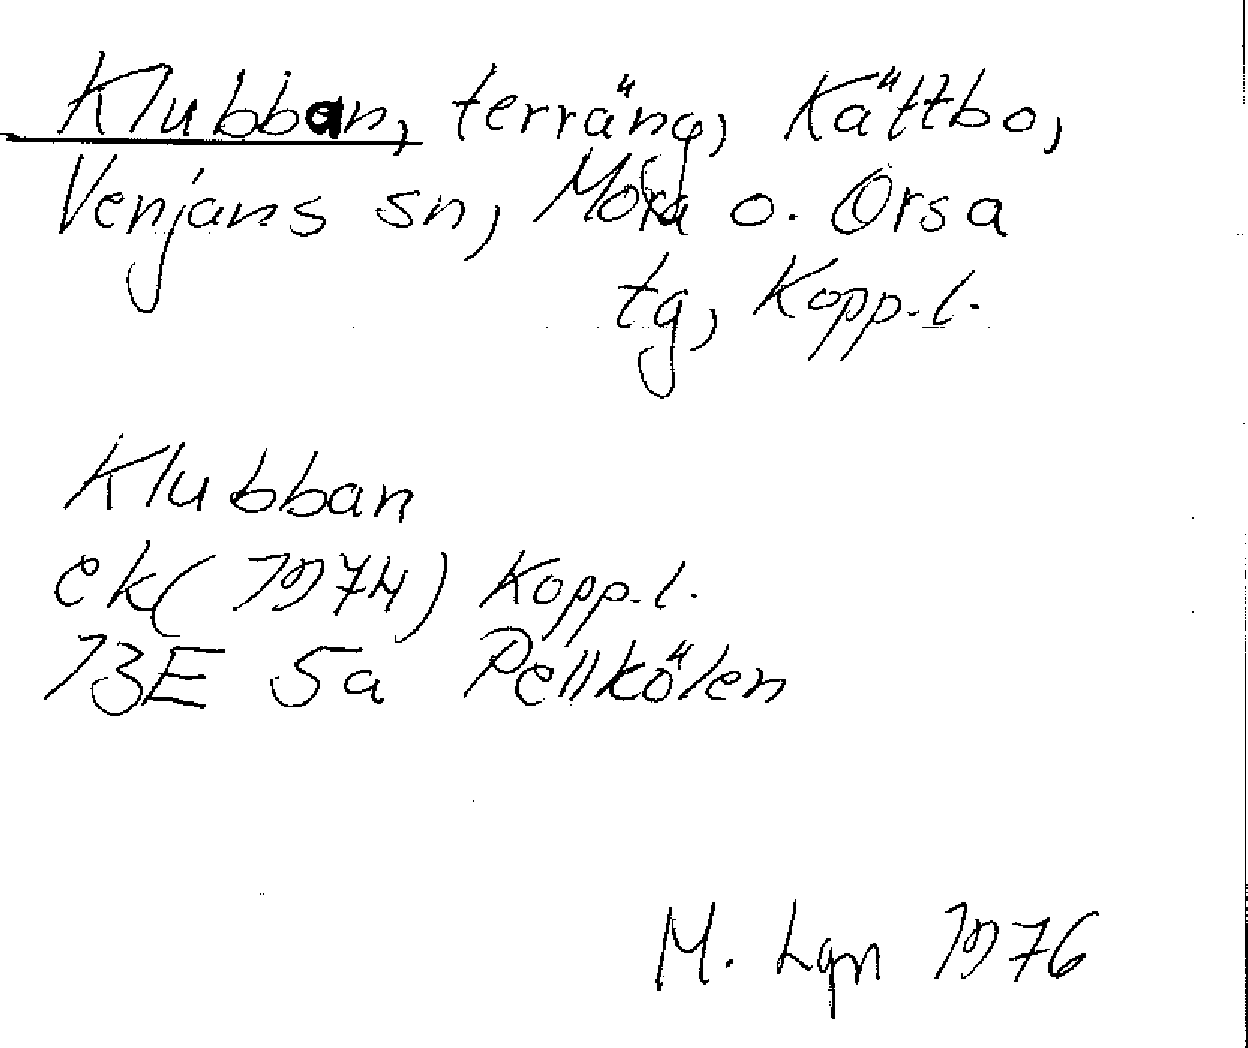 Klubban, terräng, Kättbo,
Venjans sn, Mora o. Orsa
tg, Kopp. l.
Klubban
ek (1974) Kopp. l.
13E 5a Pellkölen
M. Lgn 1976